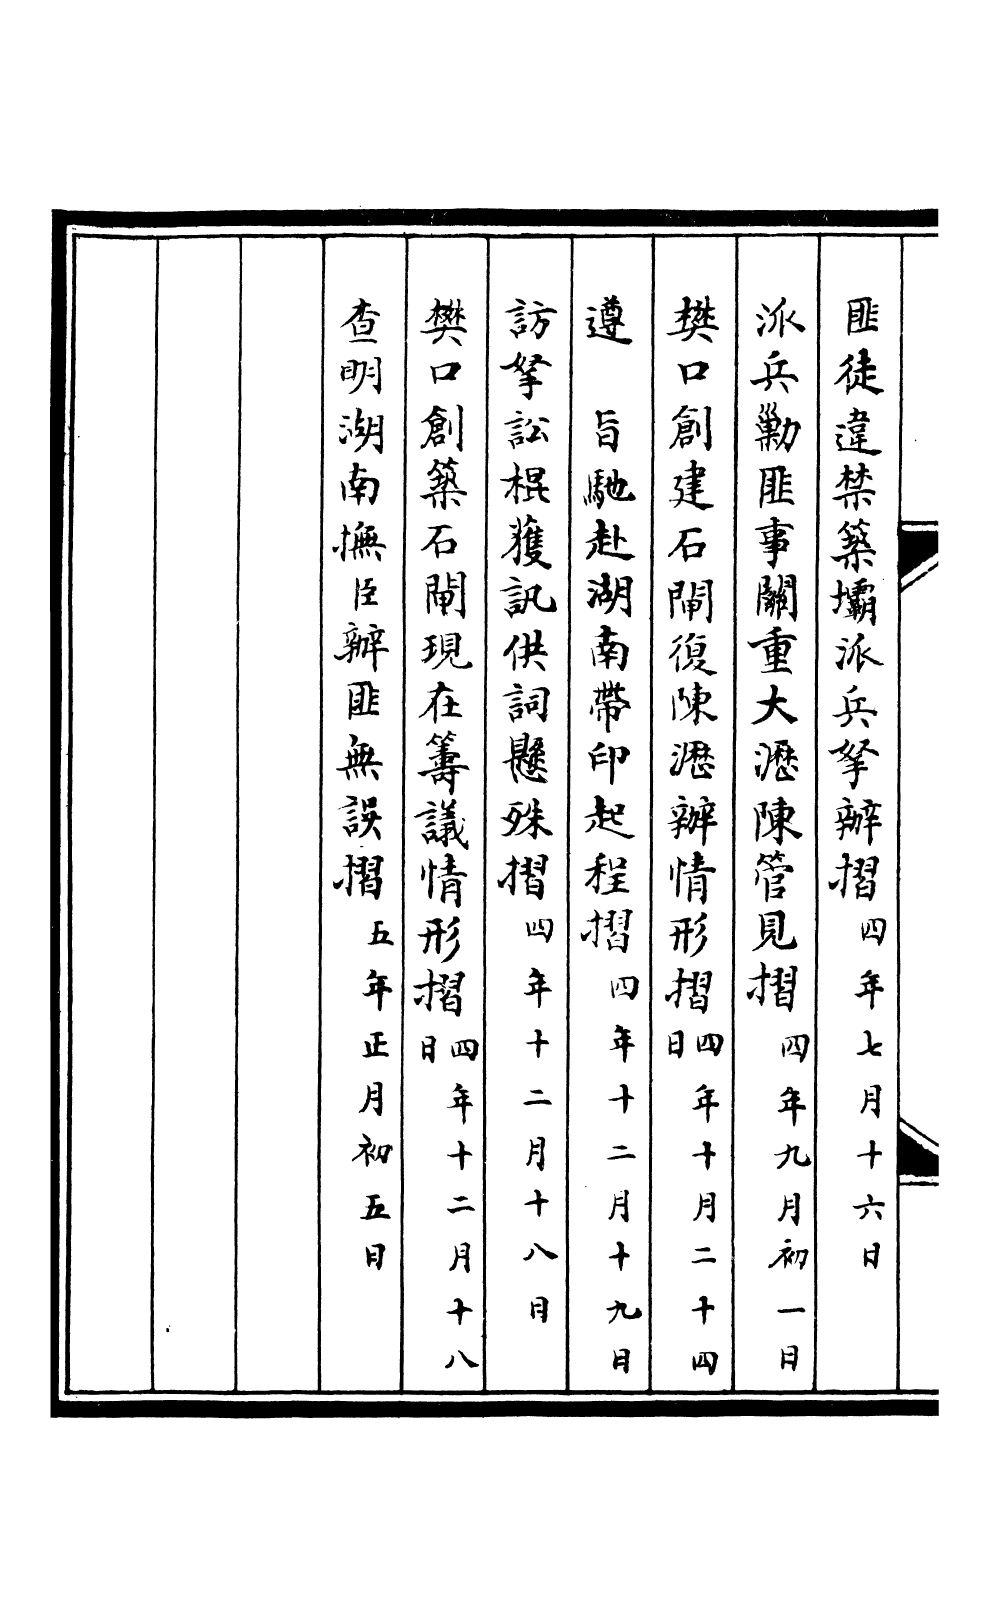 匪徒違禁築壩派兵拏辦摺四年七月十六日
派兵勦匪事關重大瀝陳管見摺四年九月初一日
樊口創建石閘復陳瀝辦情形摺四年十月二十四日
遵　旨馳赴湖南帶印起程摺四年十二月十九日
訪拏訟棍獲訊供詞懸殊摺四年十二月十八日
樊口創築石閘現在籌議情形摺四年十二月十八日
查明湖南撫臣辦匪無誤摺五年正月初五日